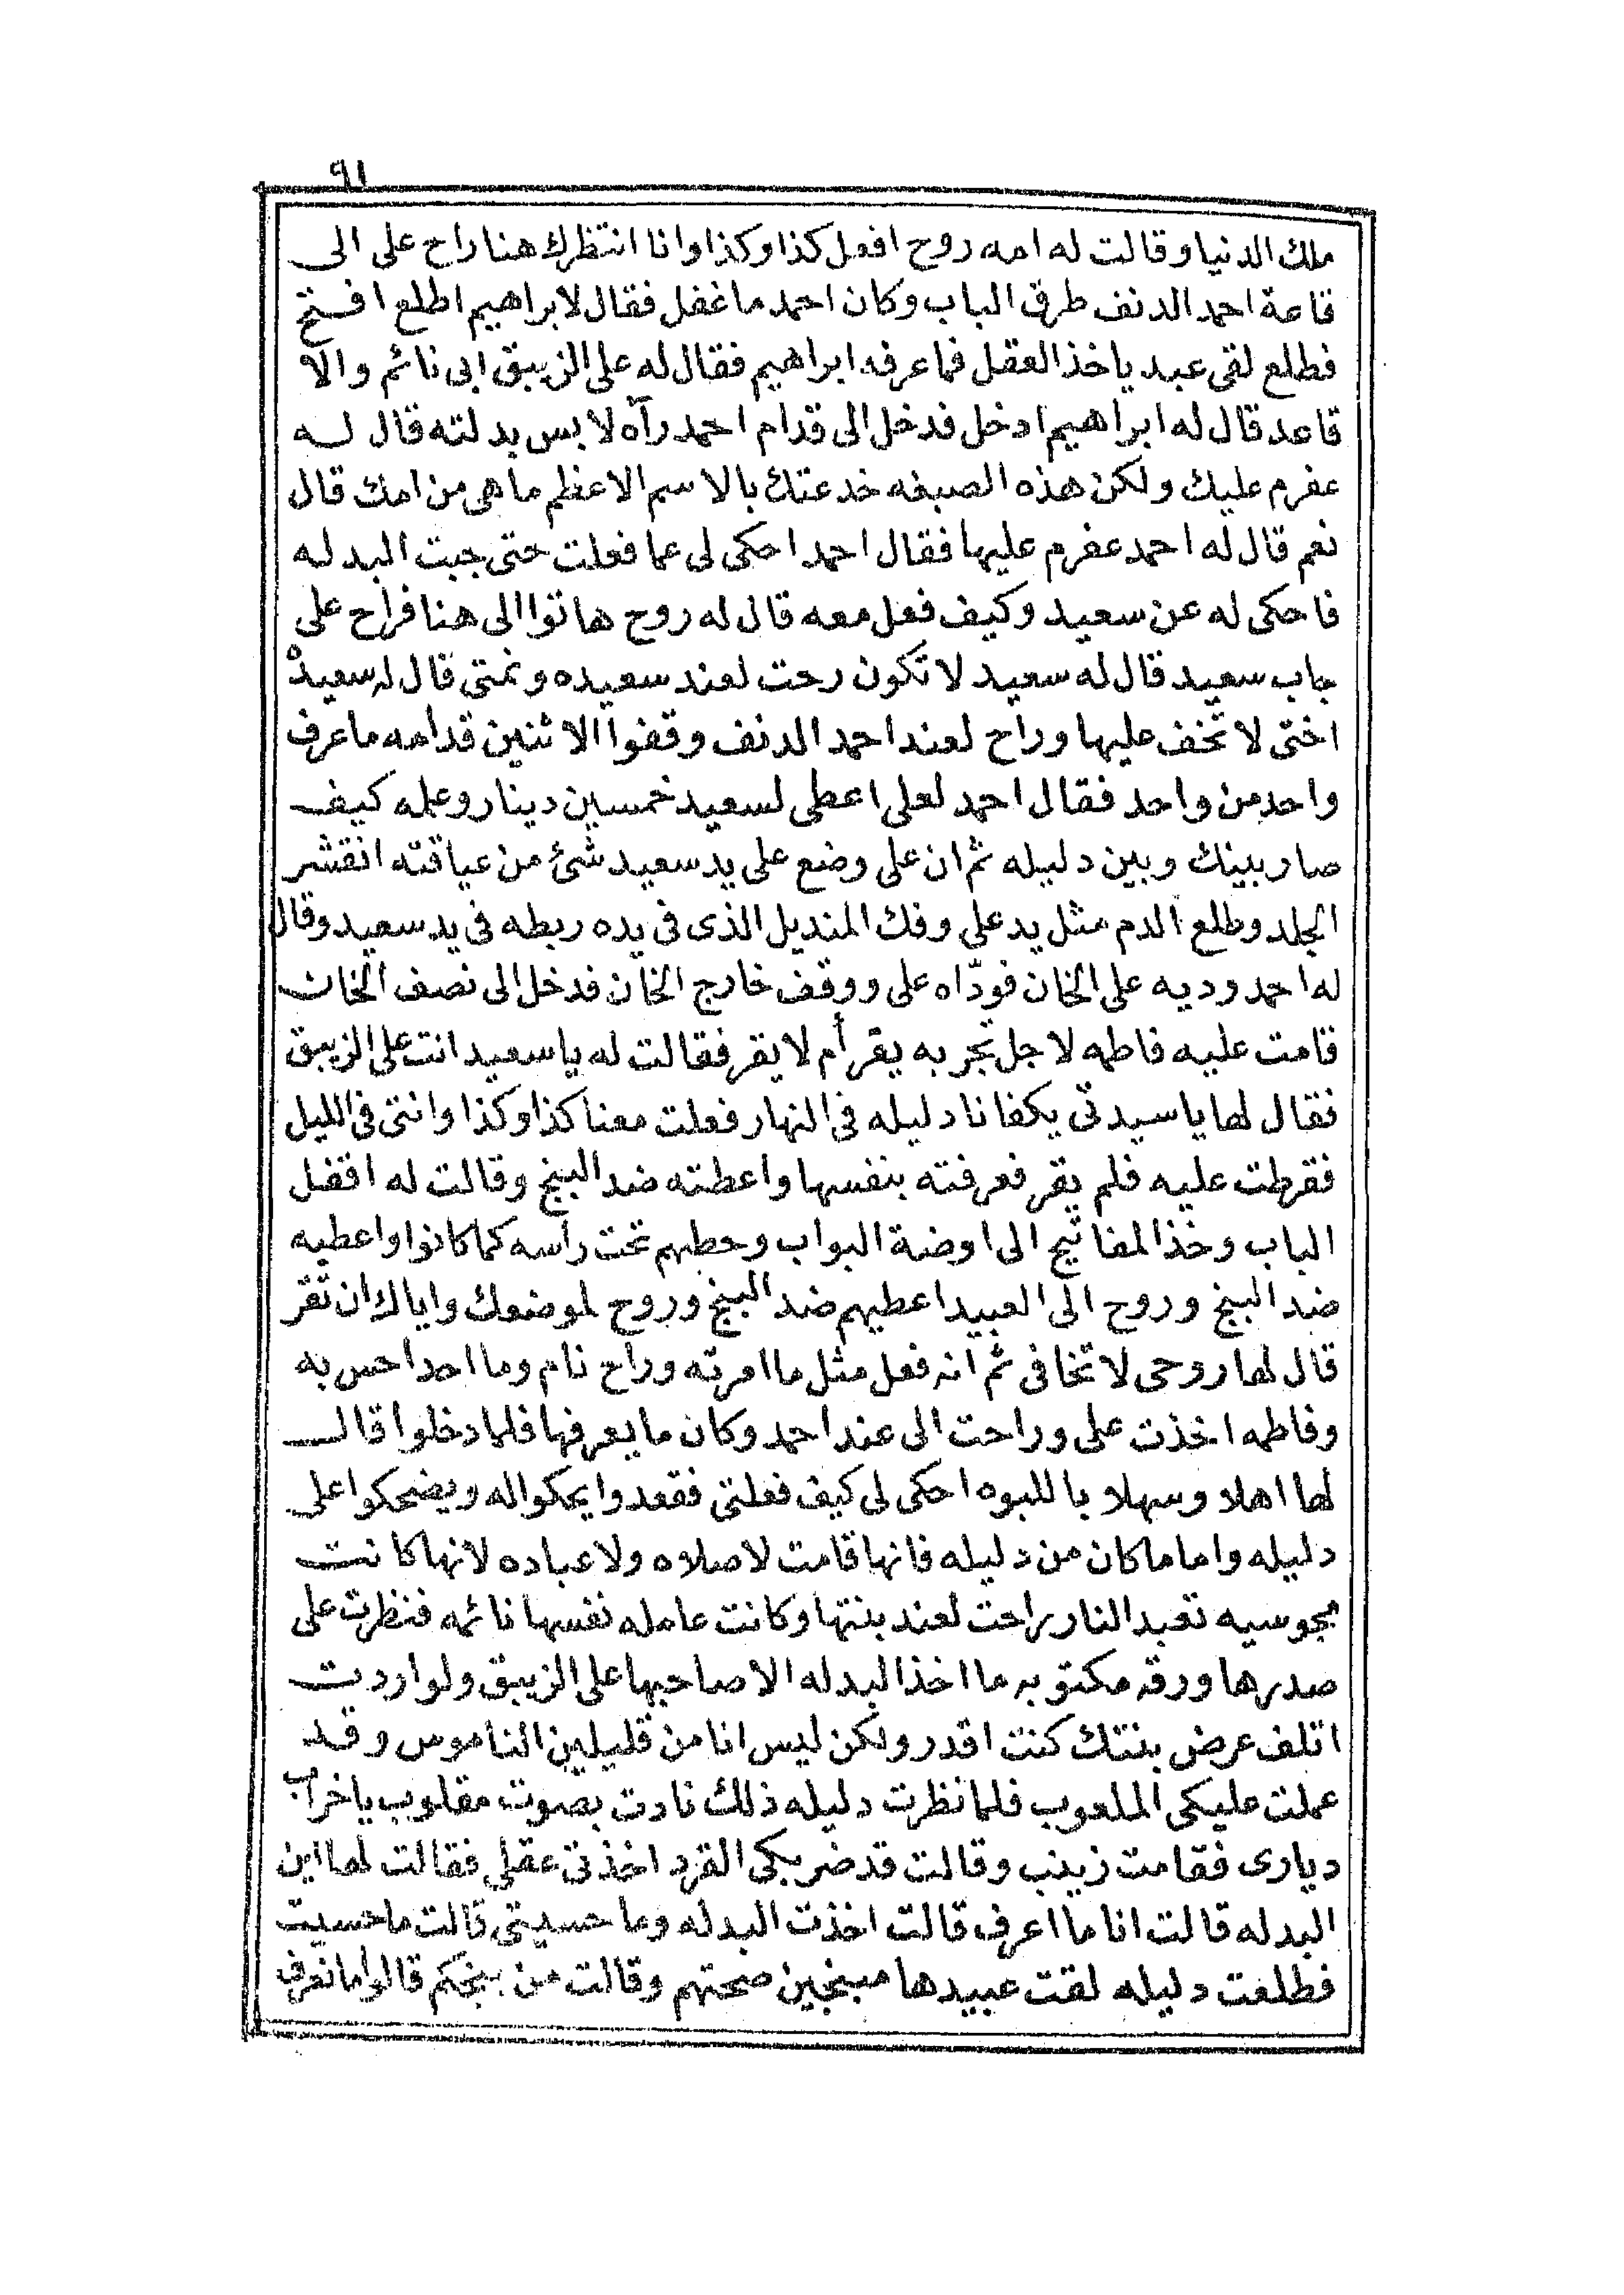 ٩١
ملك الدنيا وقالت له امه روح افعل كذا وكذا وانا انتظرك هنا راح على الى
قاعة احمد الدنف طرق الباب وكان احمد ما غفل فقال لابراهيم اطلع افتح
فطلع لقى عبد ياخذ العقل فما عرفه ابراهيم فقال له على الزيبق ابى نائم والا
قاعد قال له ابراهيم ادخل فدخل الى قدام احمد رآه لابس بدلته قال له
عفرم عليك ولكن هذه الصبغه خدعتك بالاسم الاعظم ما هى من امك قال
نعم قال له احمد عفرم عليها فقال احمد احكى لى عما فعلت حتى جبت البدله
فاحكى له عن سعيد وكيف فعل معه قال له روح هاتوا الى هنا فراح على
جاب سعيد قال له سعيد لا تكون رحت لعند سعيده ونمتى قال له سعيده
اختى لا تخف عليها وراح لعند احمد الدنف وقفوا الاثنين قدامه ما عرف
واحد من واحد فقال احمد لعلى اعطى لسعيد خمسين دينار وعلمه كيف
صار بينك وبين دليله ثم ان على وضع على يد سعيد شئ من عياقته انقشر
الجلد وطلع الدم مثل يد على وفك المنديل الذى فى يده ربطه فى يد سعيد وقال
له احمد وديه على الخان فودّاه على ووقف خارج الخان فدخل الى نصف الخان
قامت عليه فاطمه لاجل تجربه يقر أم لا يقر فقالت له يا سعيد انت على الزيبق
فقال لها يا سيدتى يكفانا دليله فى النهار فعلت معنا كذا وكذا وانتى فى الليل
فقرطت عليه فلم يقر فعرفته بنفسها واعطته ضد البنج وقالت له اقفل
الباب وخذ المفاتيح الى اوضة البواب وحطهم تحت رأسه كما كانوا واعطيه
ضد البنج وروح الى العبيد اعطيهم ضد البنج وروح لموضعك واياك ان تقر
قال لها روحى لا تخافى ثم انه فعل مثل ما امرته وراح نام وما احدا حس به
وفاطمه اخذت على وراحت الى عند احمد وكان ما يعرفها فلما دخلوا قال
لها اهلا وسهلا باللبوه احكى لى كيف فعلتى فقعدوا يحكوا له ويضحكوا على
دليله واما ما كان من دليله فانها قامت لا صلاه ولا عباده لانها كانت
مجوسيه تعبد النار راحت لعند بنتها وكانت عامله نفسها نائمه فنظرت على
صدرها ورقه مكتوبه ما اخذ البدله الا صاحبها على الزيبق ولو اردت
اتلف عرض بنتك كنت اقدر ولكن ليس انا من قليلين الناموس وقد
عملت عليكى الملعوب فلما نظرت دليله ذلك نادت بصوت مقلوب يا خراب
ديارى فقامت زينب وقالت قد ضربكى القرد اخذتى عقلى فقالت لها اين
البدله قالت انا ما اعرف قالت اخذت البدله وما حسيتى قالت ما حسيت
فطلعت دليله لقت عبيدها مبنجين صحتهم وقالت من بنجكم قالوا ما نعرف